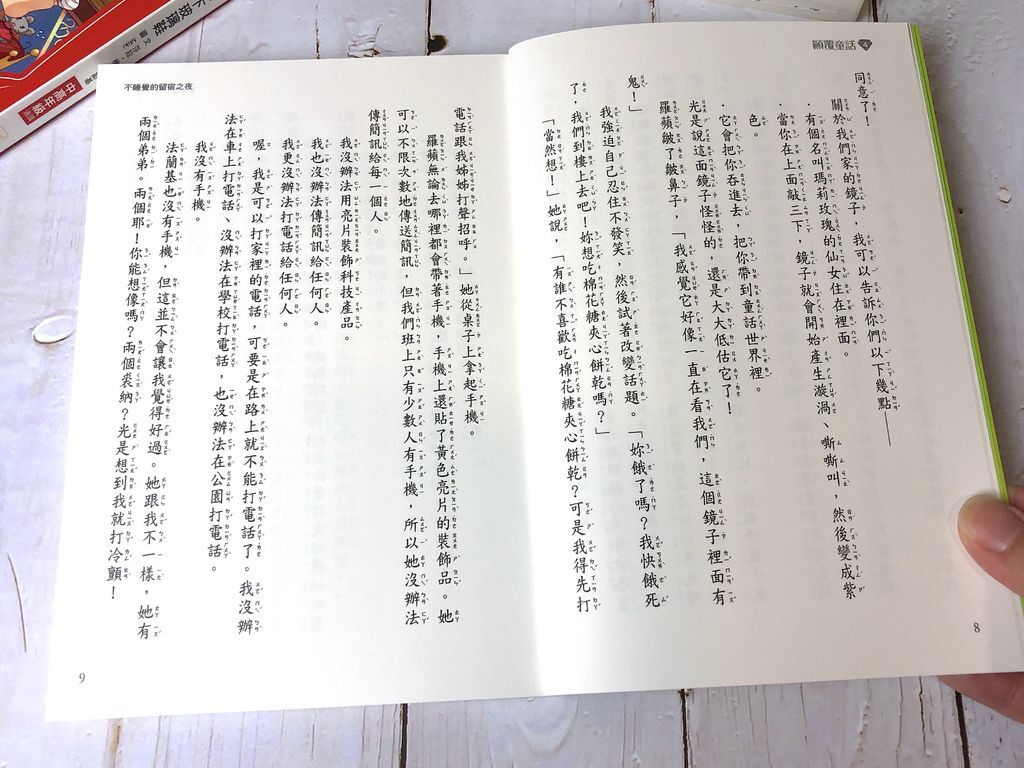 顛覆童話 4
同意了！
關於我們家的鏡子，我可以告訴你們以下幾點——
．有個名叫瑪莉玫瑰的仙女住在裡面。
．當你在上面敲三下，鏡子就會開始產生漩渦、嘶嘶叫，然後變成紫
色。
．它會把你吞進去，把你帶到童話世界裡。
光是說這面鏡子怪怪的，還是大大低估它了！
羅蘋皺了皺鼻子，「我感覺它好像一直在看我們，這個鏡子裡面有
鬼！」
我強迫自己忍住不發笑，然後試著改變話題。「妳餓了嗎？我快餓死
了，我們到樓上去吧！妳想吃棉花糖夾心餅乾嗎？」
「當然想！」她說，「有誰不喜歡吃棉花糖夾心餅乾？可是我得先打
8
不睡覺的留宿之夜
電話跟我姊姊打聲招呼。」她從桌子上拿起手機。
羅蘋無論去哪裡都會帶著手機，手機上還貼了黃色亮片的裝飾品。她
可以不限次數地傳送簡訊，但我們班上只有少數人有手機，所以她沒辦法
傳簡訊給每一個人。
我沒辦法用亮片裝飾科技產品。
我也沒辦法傳簡訊給任何人。
我更沒辦法打電話給任何人。
喔，我是可以打家裡的電話，可要是在路上就不能打電話了。我沒辦
法在車上打電話、沒辦法在學校打電話，也沒辦法在公園打電話。
我沒有手機。
法蘭基也沒有手機，但這並不會讓我覺得好過。她跟我不一樣，她有
兩個弟弟。兩個耶！你能想像嗎？兩個裘納？光是想到我就打冷顫！
9
不玻璃鞋
中高年級